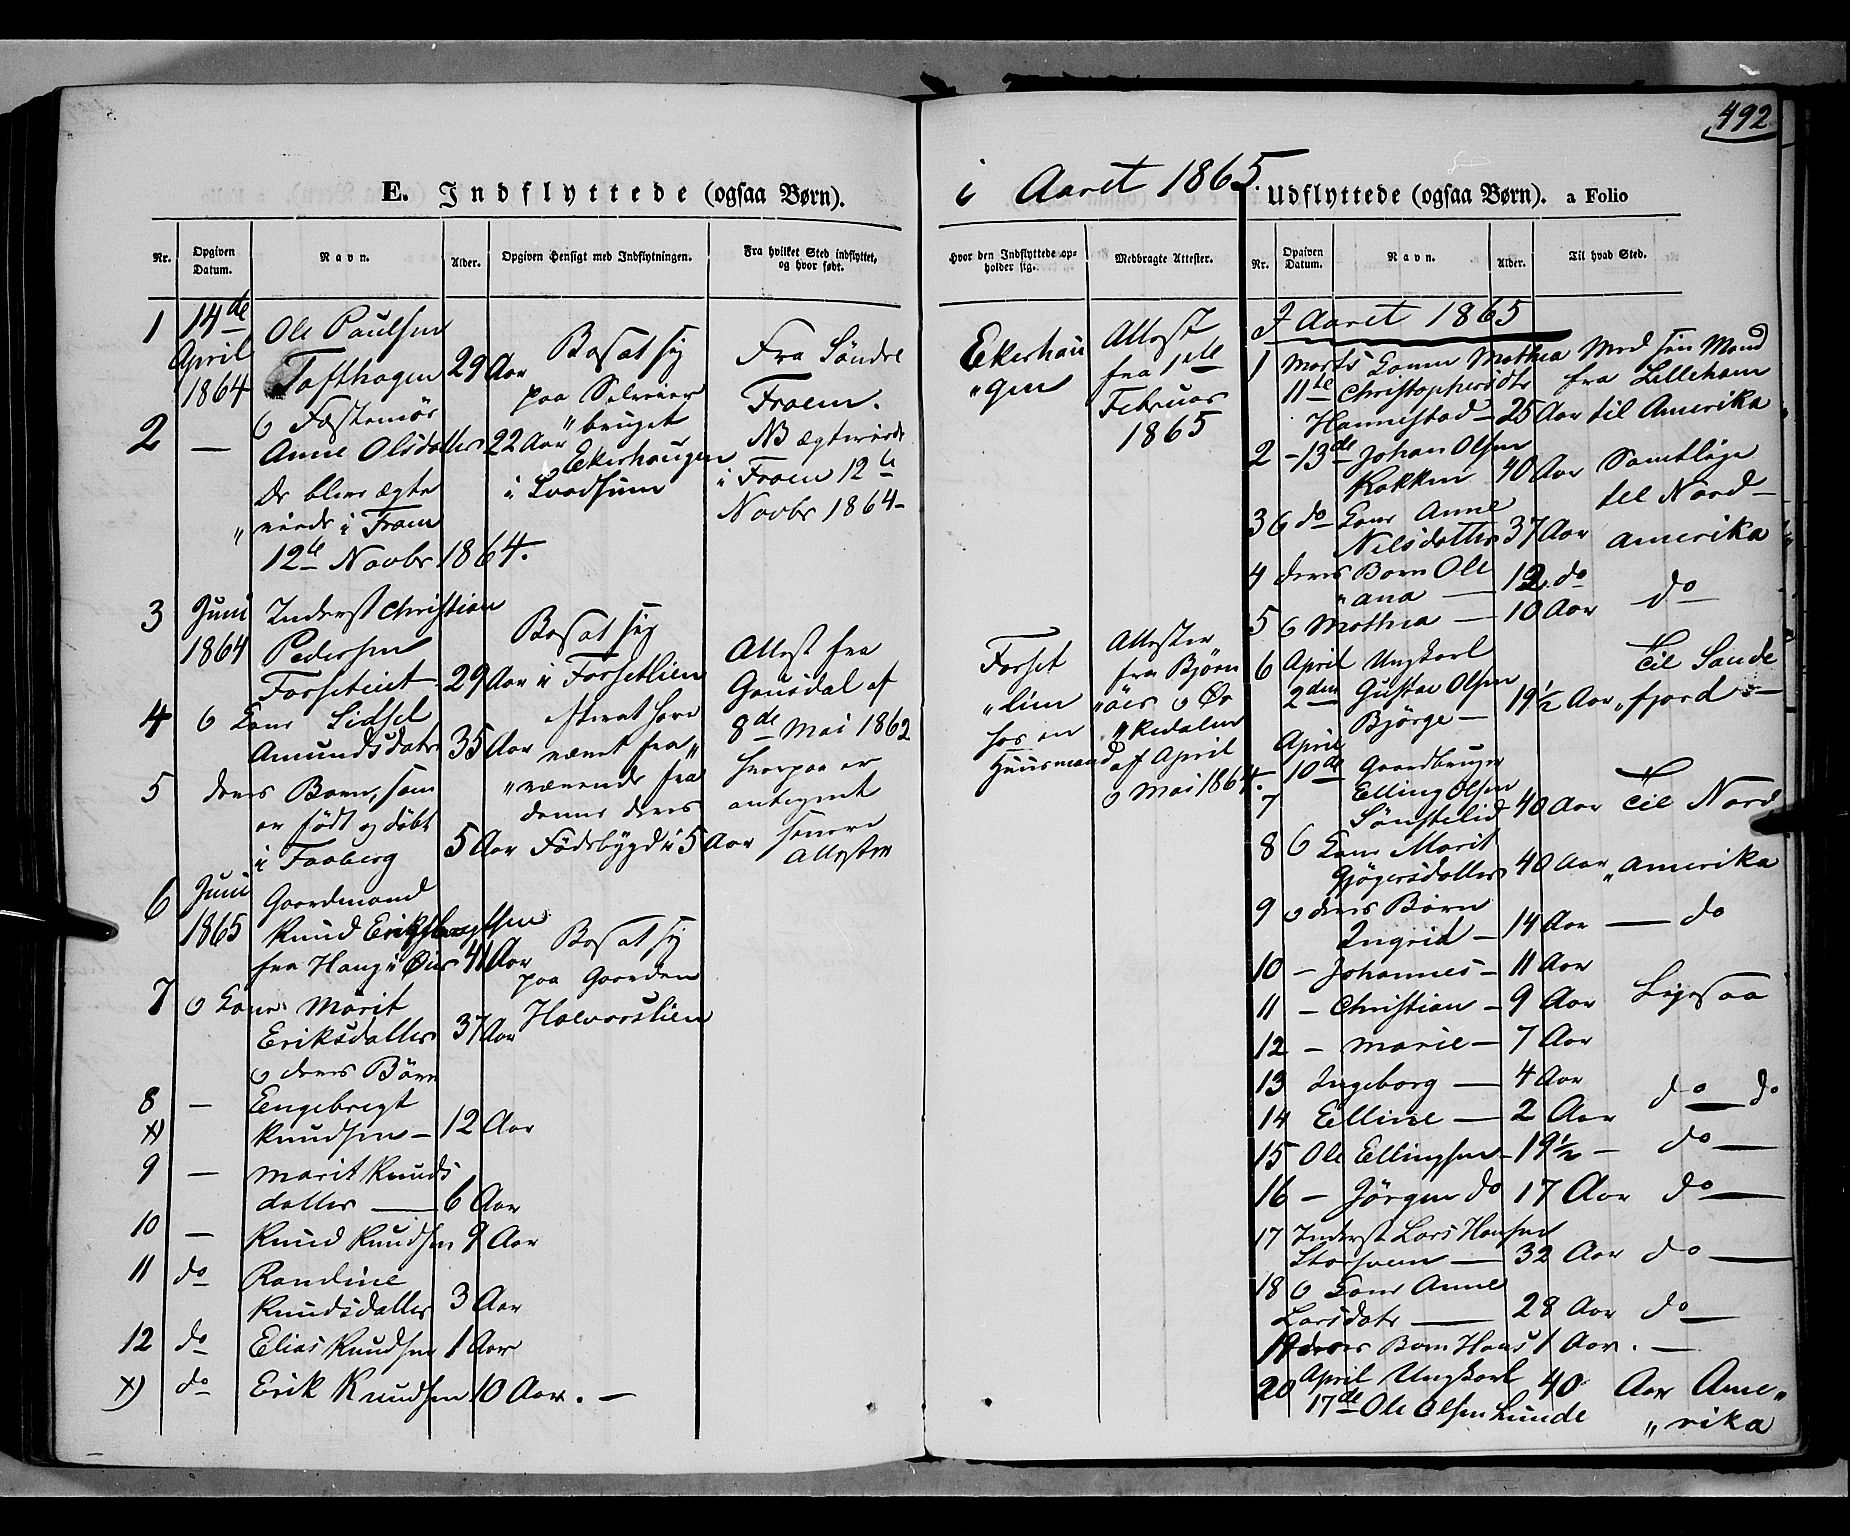 492
E. Indflyttede (ogsaa Børn).
i Aaret 1865.
Udflyttede (ogsaa Børn). a Folio
Nr.
Opgiven Datum.
Navn.
Alder.
Opgiven Hensigt med Indflytningen.
Fra hvilket Sted indflyttet, og hvor født.
Hvor den Indflyttede opholder sig.
Medbragte Attester.
Nr.
Opgiven Datum.
Navn.
Alder.
Til hvad Sted.
1 14de Ole Paulsen
April Tofthagen 29 Aar
1864 o Fæstemø
2 — Anne Olsdatter 22 Aar
de blev ægte
"viede i Froen
12te Novbr 1864.
Bosat sig
paa
"bruget
Ekerhaugen
i
Fra Søndre
Froen.
NB ægteviede
i Froen 12te
Novbr 1864–
Ekerhau
"gen
Attest
fra 1ste
Februar
1865
3 Juni Inderst Christian
1864 Pedersen
29 Aar
4 o Kone Sidsel
Amundsdatr 35 Aar
5 deres Barn, som
er født og døbt
i Faaberg 5 Aar
Bosat sig
i Forsetlien
efterat have
været fra"
"værende fra
denne deres
Fødebygd i 5 Aar
Attest fra
Gausdal af
8de Mai 1862
hvorpaa er
antegnet
senere
Attester
Forset
"lien
hos en
Huusmand
Attester
fra Bjørn
"aes o Ør
af April
o Mai 1864.
6 Juni Gaardmand
1865 Knud
fra Haug i 41 Aar
7 o Kone Marit
Eriksdatter 37 Aar
o deres Børn
8 — Engebregt
x) Knudsen – 12 Aar
9 — Marit Knuds
datter — 6 Aar
10 — Knud Knudsen 9 Aar
11 do Randine
Knudsdatter 3 Aar
12 do Elias Knudsen 1 Aar
x) do Erik Knudsen 10 Aar. –
Bosat sig
paa Gaarden
Halvorslien
I Aaret 1865
1 Marts Konen Mathea Med sin Mand
11te Christophersdtr fra Lilleham
Hammestad – 25 Aar til Amerika
2 – 13de Johan Olsen
Kokken 40 Aar Samtlige
til Nord–
3 o do Kone Anne
Nilsdatter 37 Aar Amerika
4 deres Børn Ole
"ana — 12 do do
5 o Mathea — 10 Aar
6 April Ungkarl Til Sande
2den Gustav Olsen 19½ Aar "fjord –
Bjørge –
April
10de Gaardbruger
7 Elling Olsen
Sønstelid 40 Aar Til Nord
8 o Kone Marit
40 Aar "Amerika
9 o deres Børn
Ingrid – 14 Aar — do
10 – Johannes – 11 Aar
11 – Christian – 9 Aar Ligesaa
12 – Marie – 7 Aar
13 Ingeborg — 4 Aar
14 Elline — 2 Aar do — do
15 Ole Ellingsen – 19½ – do —
16 – Jørgen do 17 Aar do —
17 Inderst Lars Hansen
32 Aar do —
18 o Kone Anne
Larsdatr — 28 Aar do —
19 deres Barn Hans 1 Aar. –
20 April Ungkarl 40 Aar Ame"
17de Ole Olsen Lunde "rika